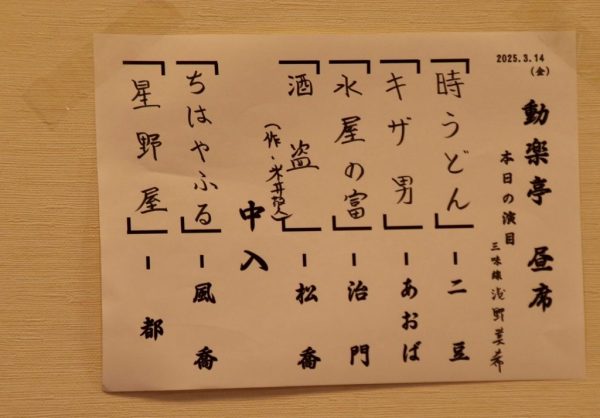 2025.3.14
(金)
動楽亭 昼席
本日の演目
三味線 浅野美希
「時うどん」 ー 二豆
「キザ男」 ー あおば
「水屋の富」 ー 治門
「酒盗」 ー 松喬
中入
「ちはやふる」 ー 風喬
「星野屋」 ー 都